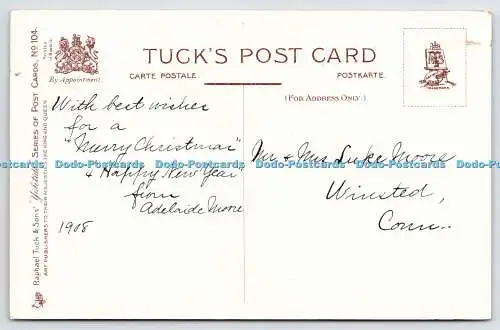 TUCK'S POST CARD
CARTE POSTALE
POSTKARTE.
(FOR ADDRESS ONLY.)
By Appointment.
Raphael Tuck & Sons' "Yuletide" Series of Post Cards, No 104.
ART PUBLISHERS TO THEIR MAJESTIES THE KING AND QUEEN
With best wishes
for a
"Merry Christmas"
& Happy New Year"
from
Adelaide Moore
1908
Mr & Mrs Luke Moore
Winsted,
Conn.
Dodo-Postcards Dodo-Postcards Dodo-Postcards Dodo-Postcards Dodo-Postcards
Dodo-Postcards Dodo-Postcards Dodo-Postcards Dodo-Postcards